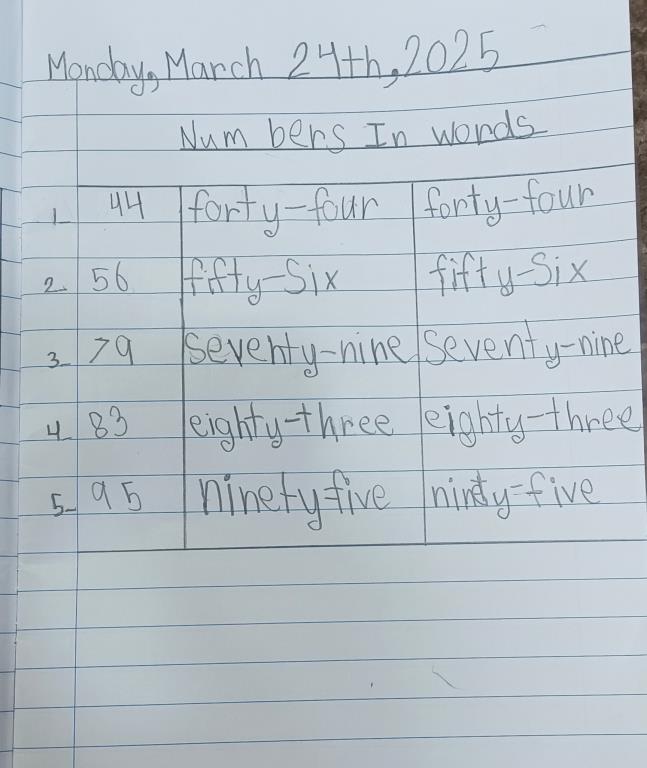 Monday, March 24th, 2025
Numbers In words
1- 44 forty-four forty-four
2- 56 fifty-Six fifty-Six
3- 79 seventy-nine seventy-nine
4- 83 eighty-three eighty-three
5- 95 ninetyfive ninty-five